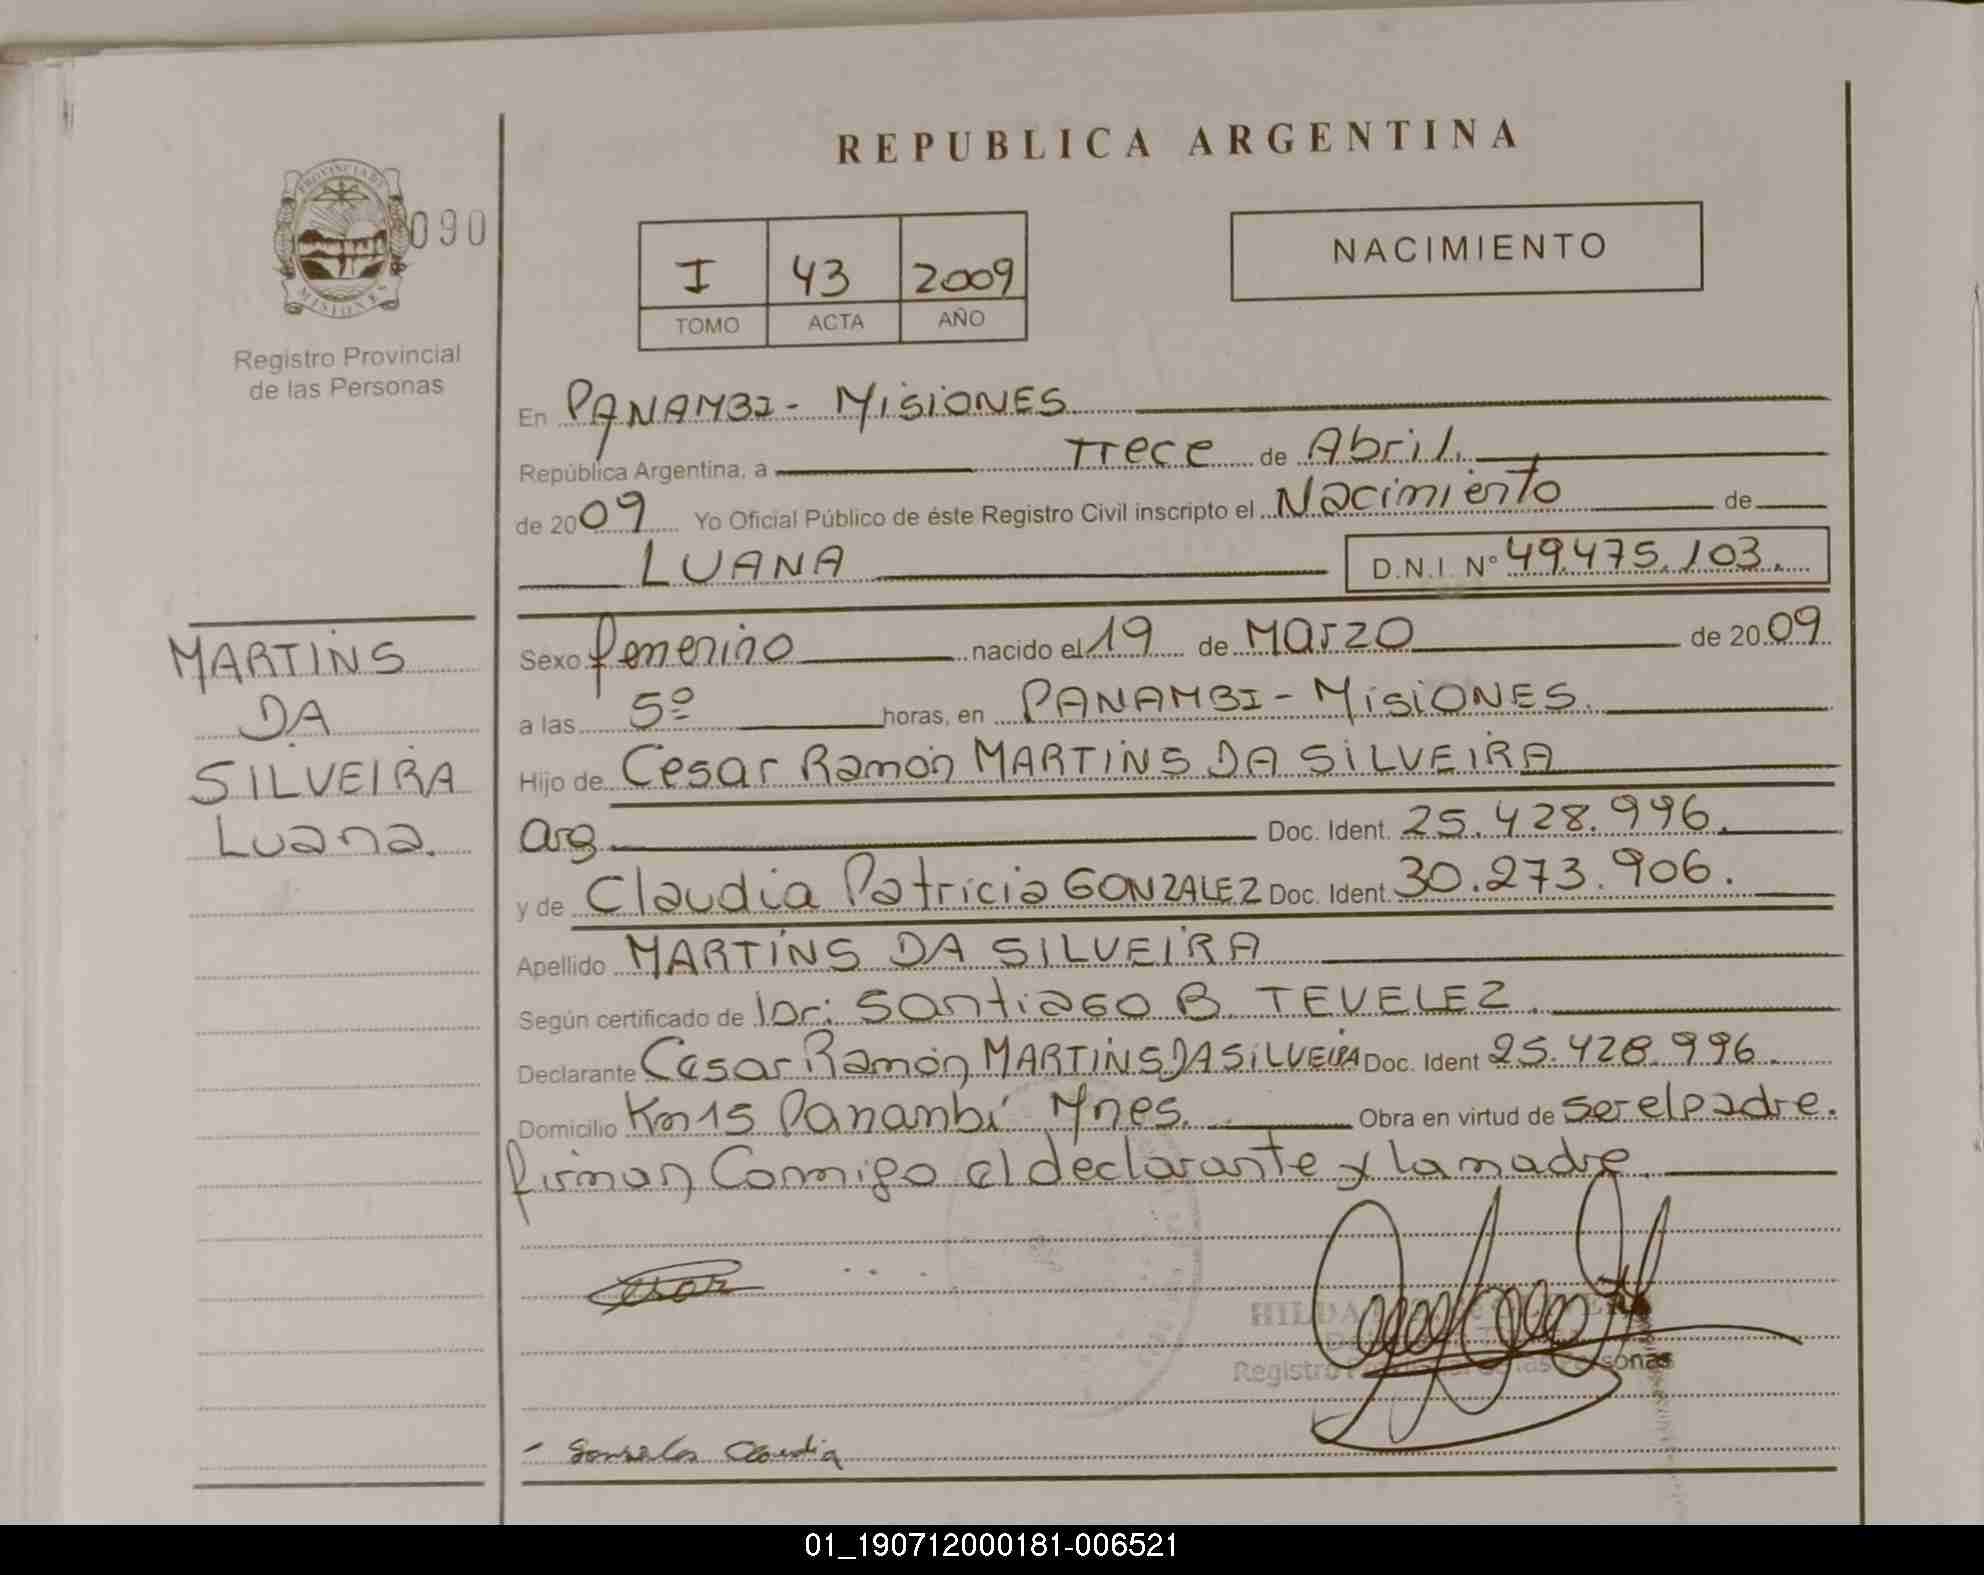 REPUBLICA ARGENTINA
PROVINCIA DE
MISIONES
090
Registro Provincial
de las Personas
I 43 2009
TOMO ACTA AÑO
NACIMIENTO
En PANAMBI - MisiONES
República Argentina, a Trece de Abril.
de 2009 Yo Oficial Público de éste Registro Civil inscripto el Nacimiento de
LUANA D.N.I. Nº 49.475.103.
MARTINS
DA
SILVEIRA
Luana.
Sexo femenino nacido el 19 de Marzo de 2009
a las 5º horas, en PANAMBI - MisiONES.
Hijo de Cesar Ramón MARTINS DA SILVEIRA
arg Doc. Ident. 25.428.996.
y de Claudia Patricia GONZALEZ Doc. Ident. 30.273.906.
Apellido MARTINS DA SILVEIRA
Según certificado de Dr: Santiago B. TEVELEZ.
Declarante Cesar Ramón MARTINS DA SILVEIRA Doc. Ident 25.428.996.
Domicilio Km 15 Panambí Mnes. Obra en virtud de ser el padre.
firman Conmigo el declarante y la madre.
HILDA
Registro Personas
Claudia
01_190712000181-006521